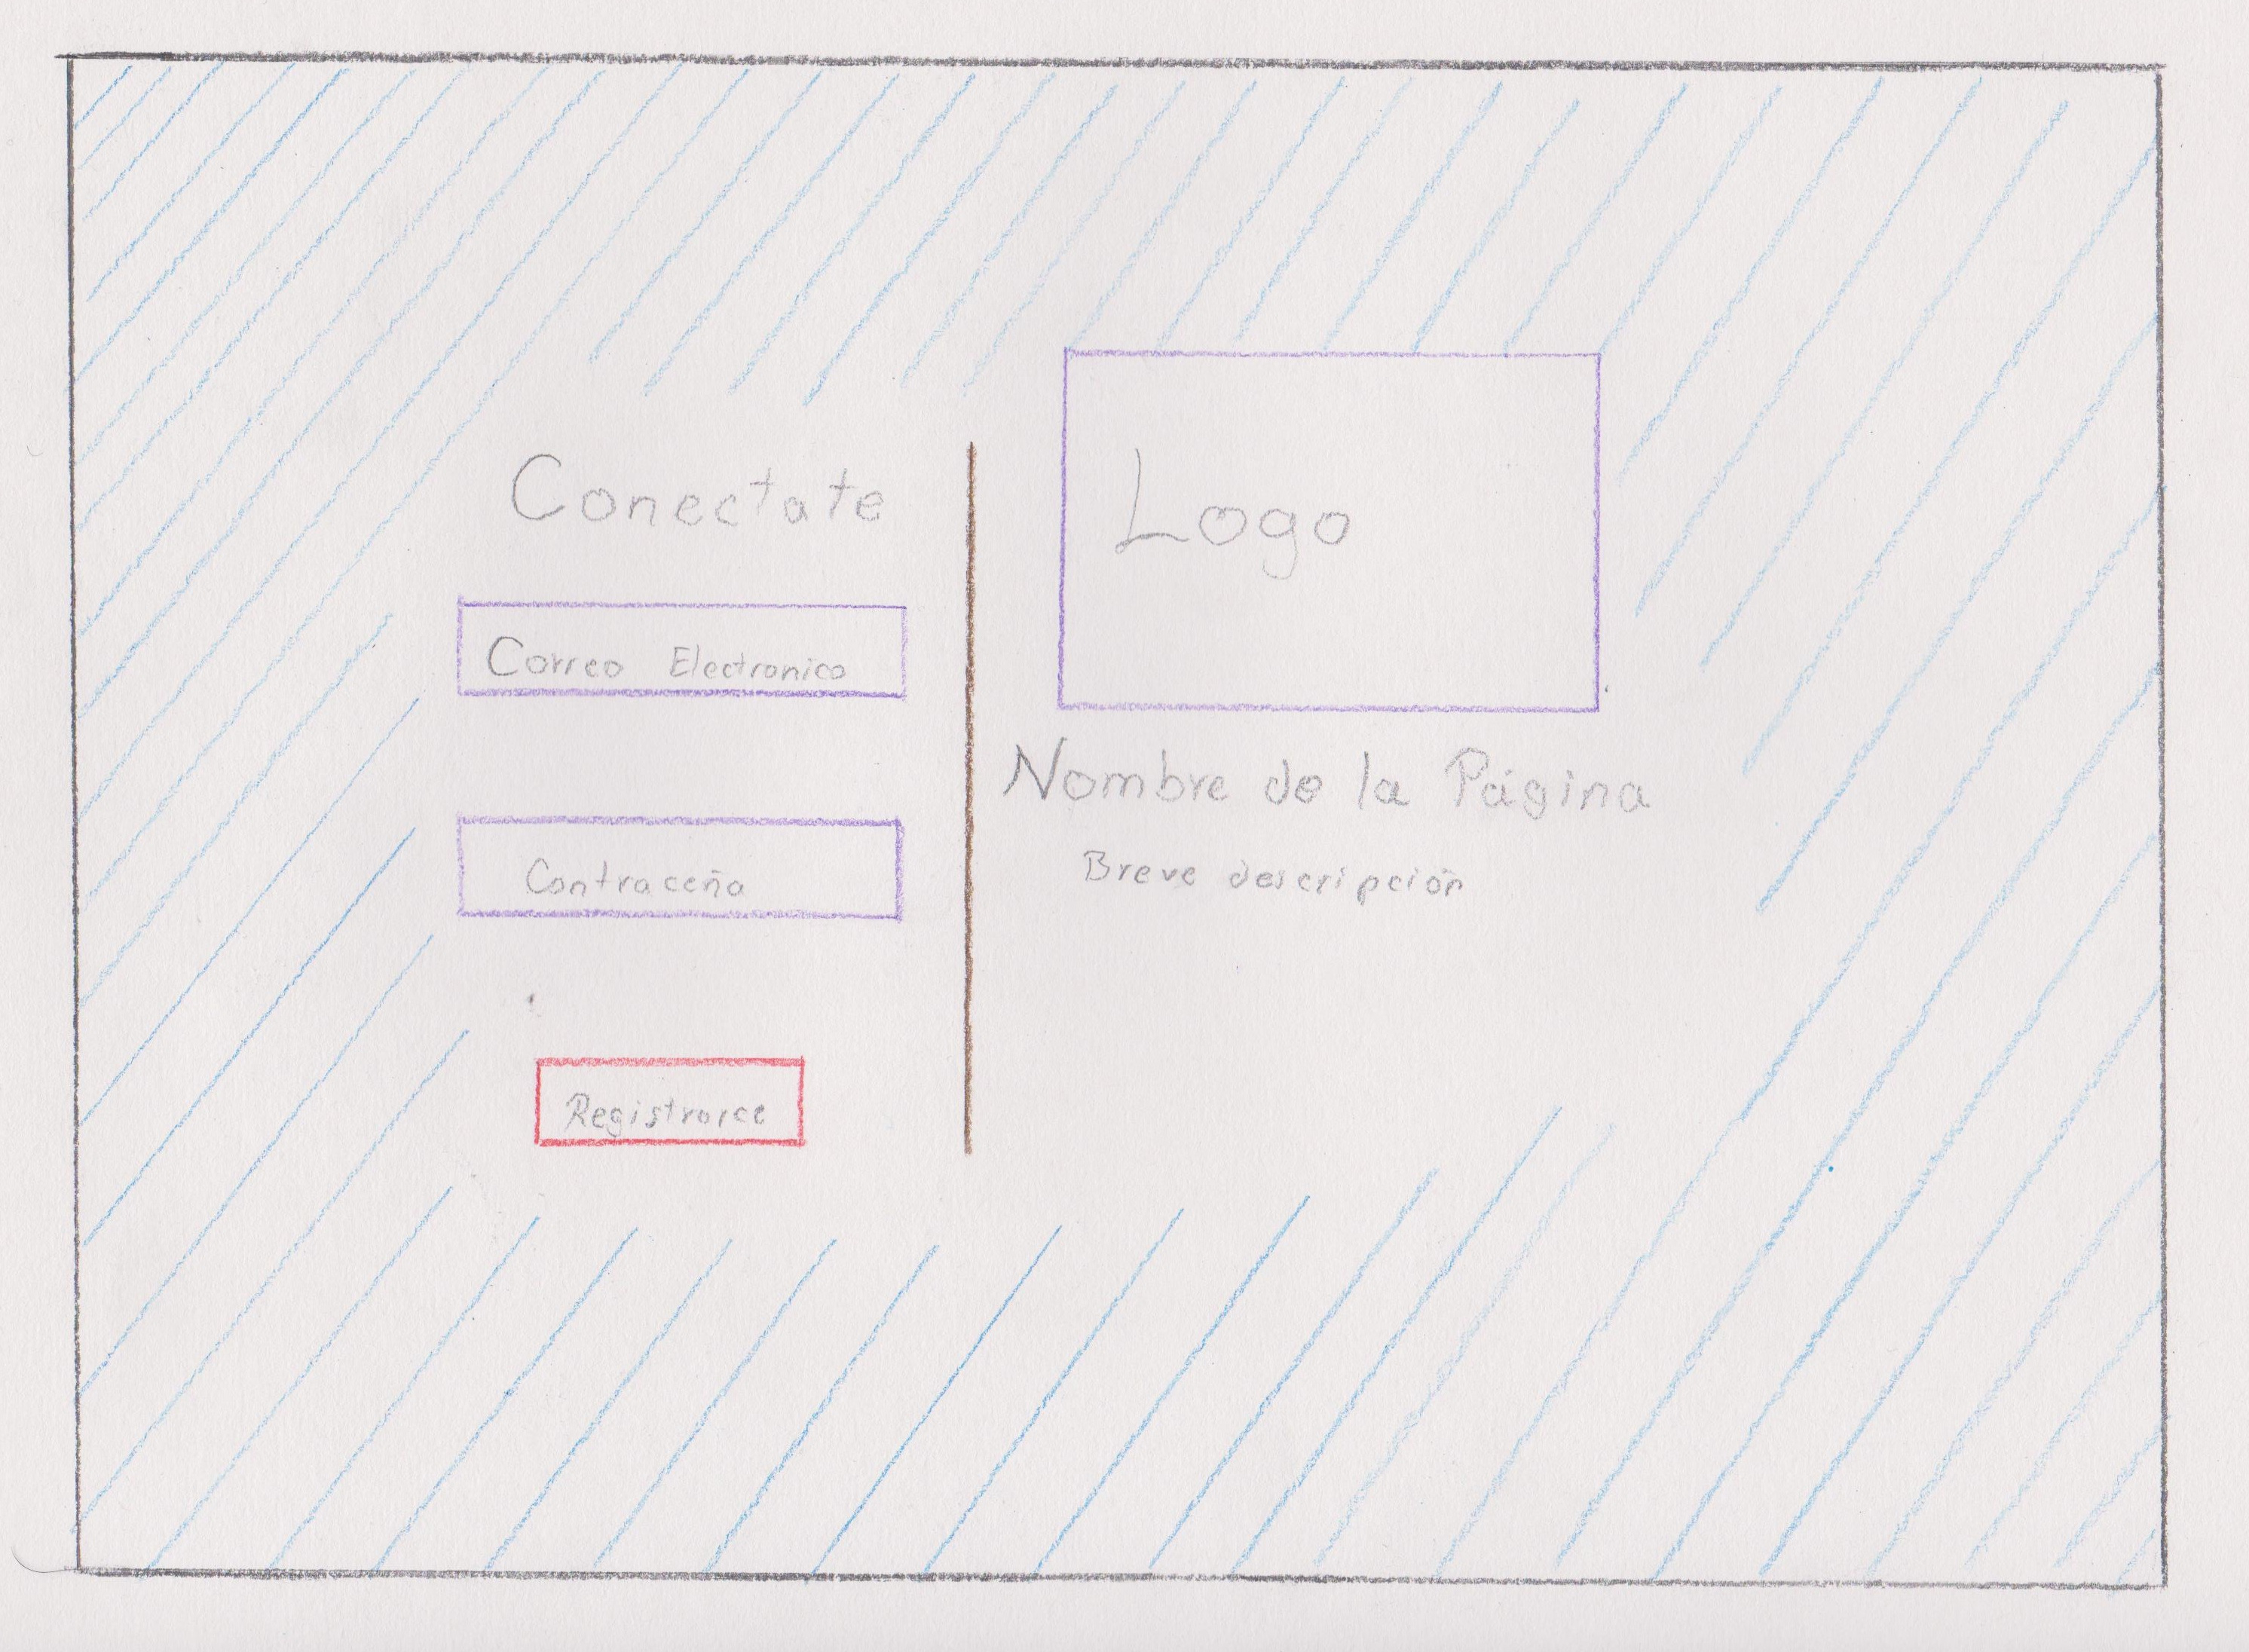 Conectate
Correo Electronico
Contraceña
Registrarce
Logo
Nombre de la Página
Breve descripción